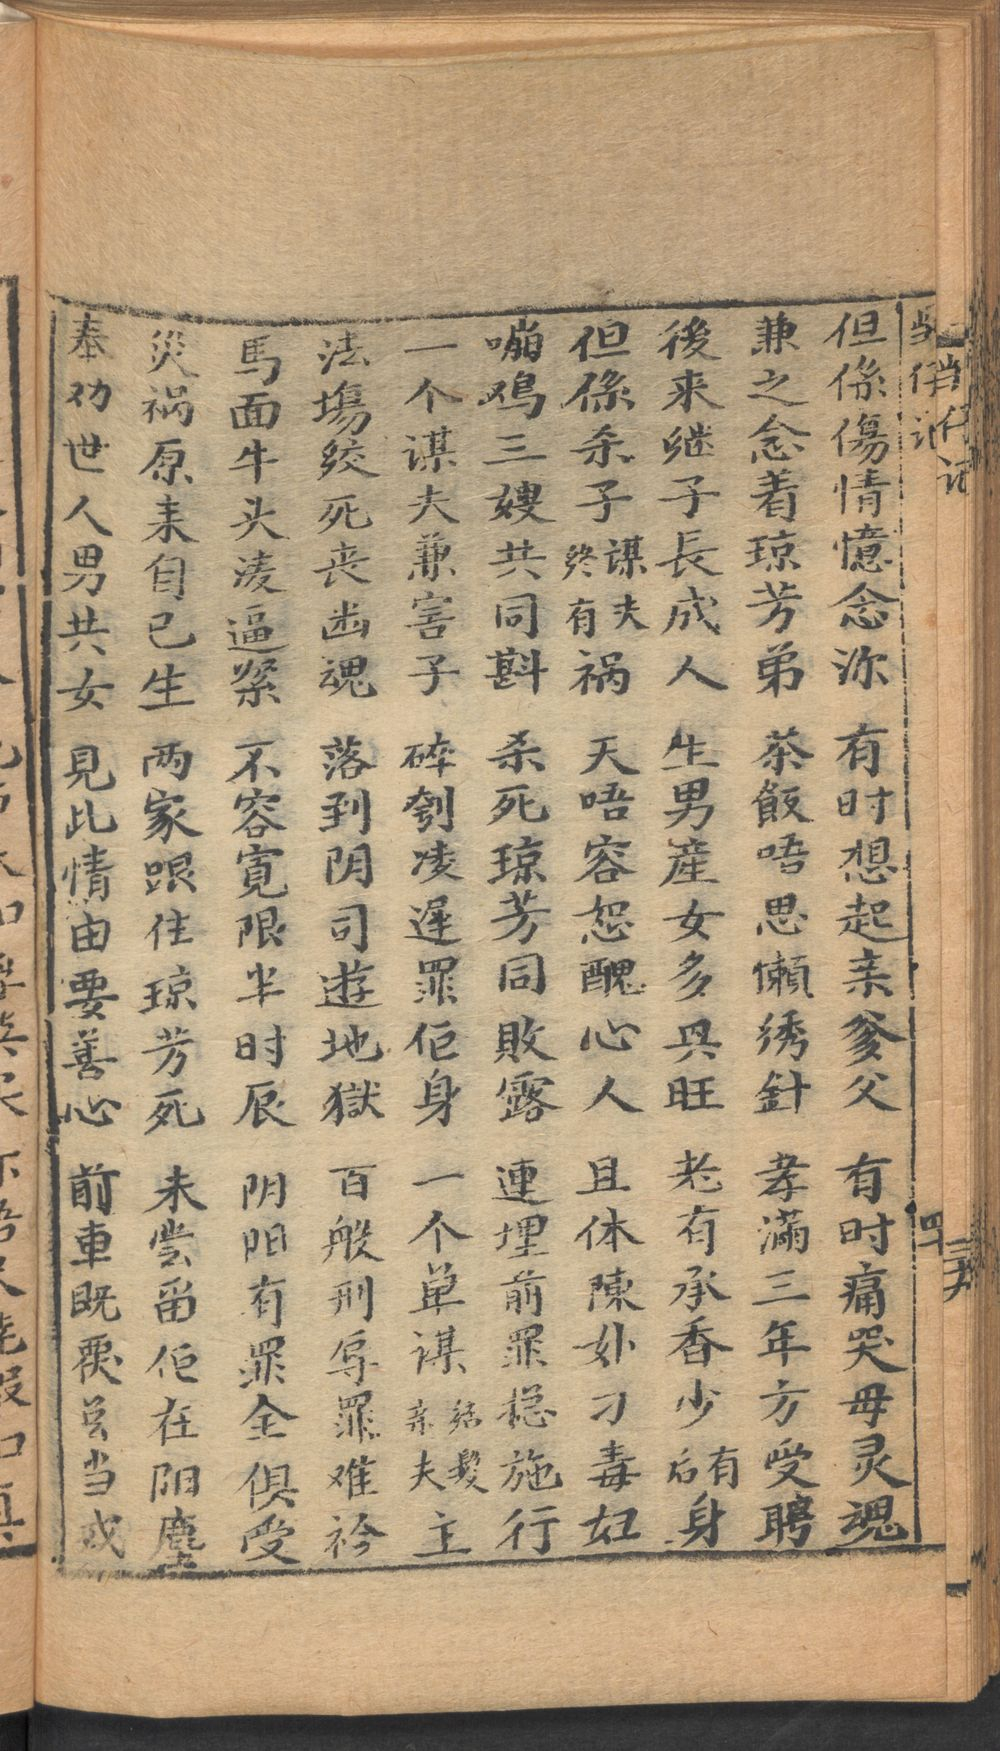 但係傷情憶念沵　有时想起亲爹父　有时痛哭母灵魂
兼之念着琼芳弟　茶飯唔思懒绣針　孝滿三年方受聘
後来继子長成人　生男產女多兴旺　老有承香少有后身
但係杀子谋夫终有祸　天唔容恕醜心人　且体陳妚刁毒妇
嘣鸡三嫂共同斟　杀死琼芳同敗露　連埋前罪穏施行
一个谋夫兼害子　碎刳凌遲罪佢身　一个单谋结髮亲夫主
法塲绞死丧凼魂　落到阴司遊地獄　百般刑辱罪难衿
馬面牛头淩逼紧　不容寬限半时辰　阴阳有罪全俱受
災祸原来自己生　两家跟住琼芳死　未尝留佢在阳塵
奉劝世人男共女　見此情由要善心　前車既覆曾当戒
四